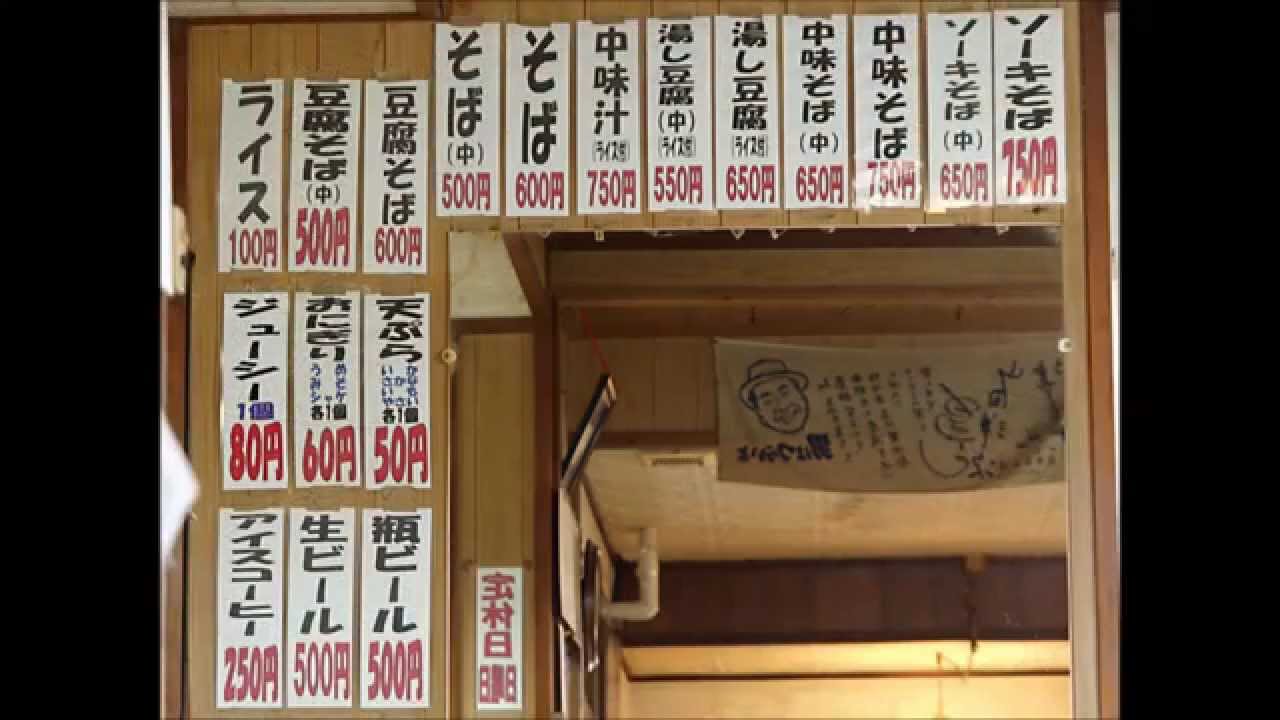 ソーキそば
750円
ソーキそば
(中)
650円
中味そば
750円
中味そば
(中)
650円
湯し豆腐
(ライス付)
650円
湯し豆腐
(中)
(ライス付)
550円
中味汁
(ライス付)
750円
そば
600円
そば
(中)
500円
豆腐そば
600円
豆腐そば
(中)
500円
ライス
100円
天ぷら
いか
やさい
各1個
50円
おにぎり
各1個
60円
ジューシー
1個
80円
瓶ビール
500円
生ビール
500円
アイスコーヒー
250円
定休日
日曜日